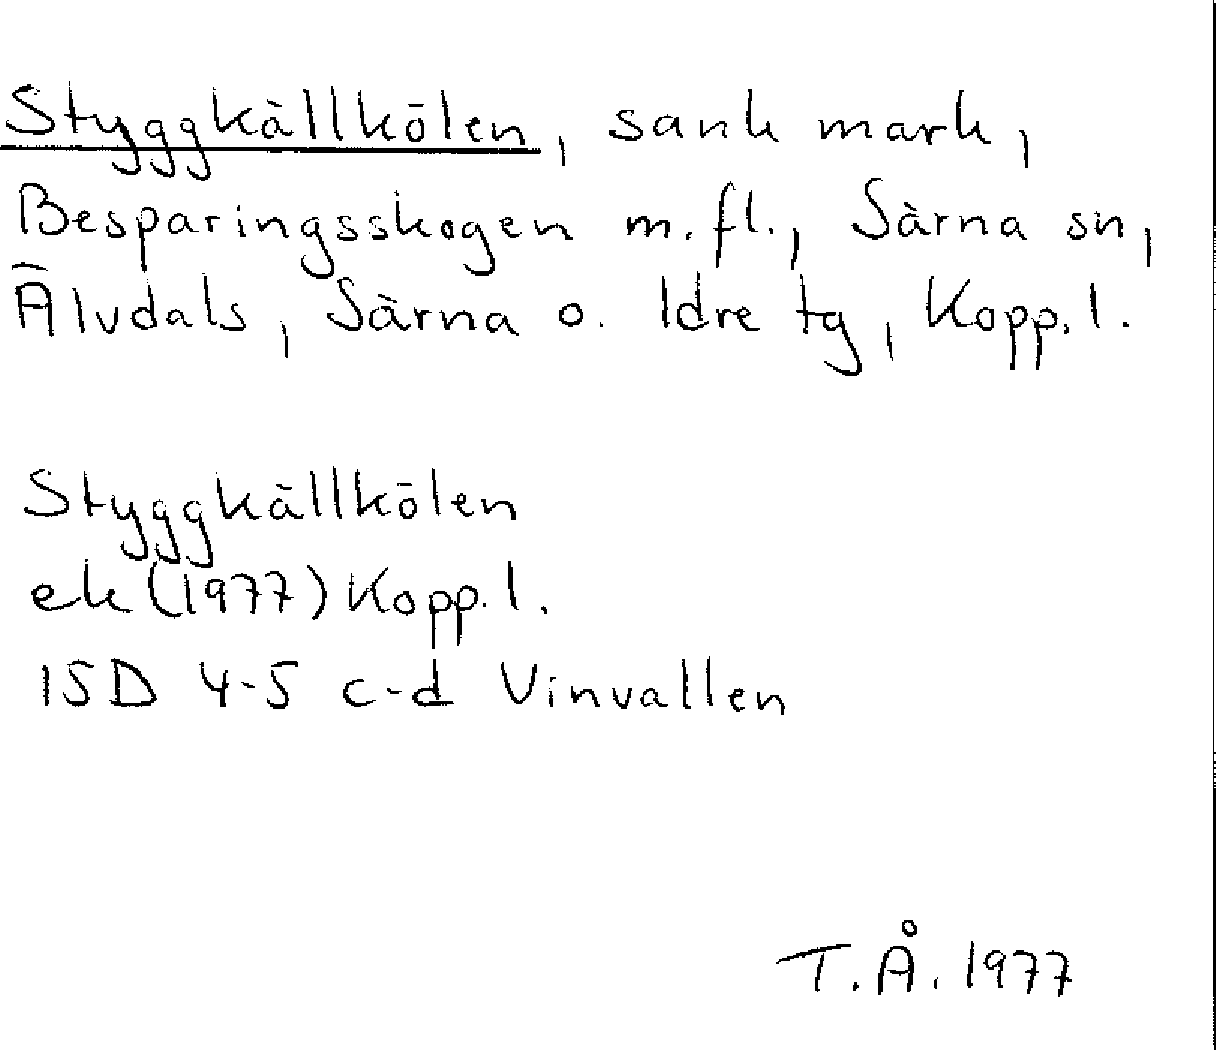 Styggkällkölen, sank mark,
Besparingsskogen m.fl., Särna sn,
Älvdals, Särna o. Idre tg, Kopp.l.
Styggkällkölen
ek (1977) Kopp.l.
15D 4-5 c-d Vinvallen
T.Å. 1977